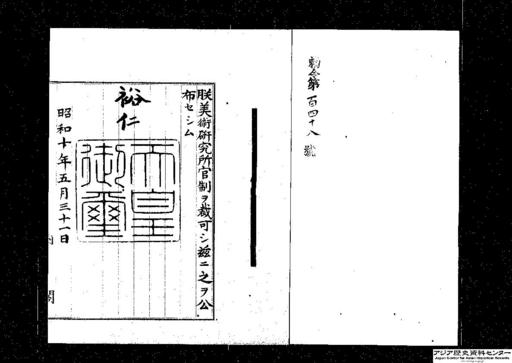 勅令第百四十八號
朕美術硏究所官制ヲ裁可シ茲ニ之ヲ公
布セシム
裕仁
天皇
御璽
昭和十年五月三十一日
内閣
アジア歴史資料センター
Japan Center for Asian Historical Records